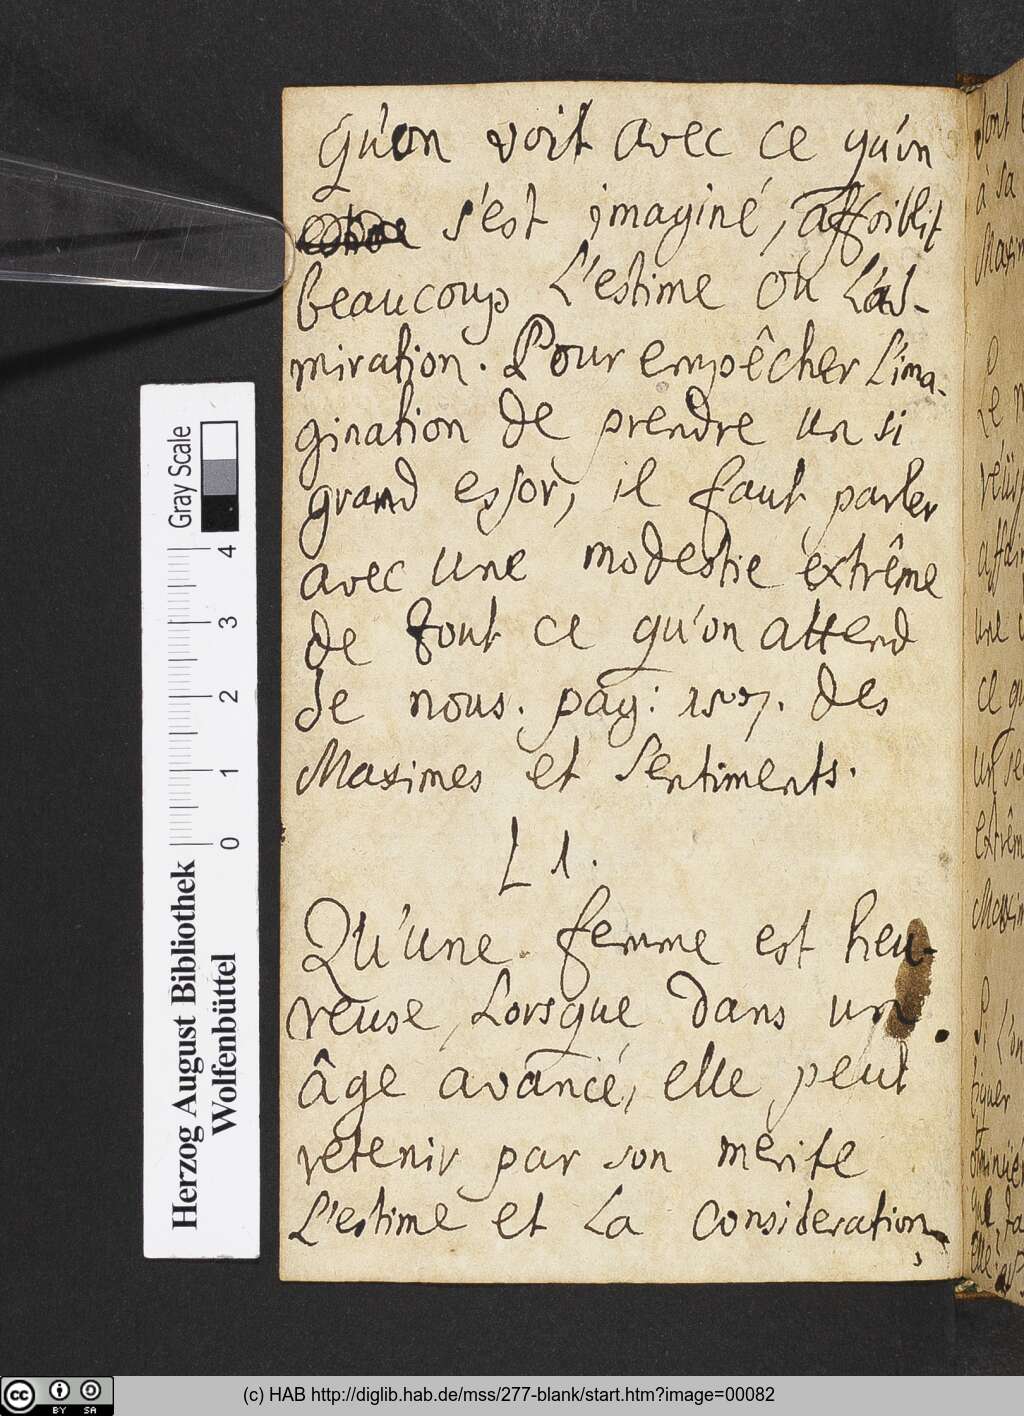 Qu'on voit avec ce qu'on
s'est imaginé, affoiblit
beaucoup L'estime ou L'ad-
miration. Pour empêcher L'ima-
gination de prendre un si
grand essor, il faut parler
avec une modestie extrême
de tout ce qu'on attend
de nous. pag: 157. des
Maximes et Sentiments.
L 1.
Qu'une femme est heu-
reuse, Lorsque dans un
âge avancé, elle peut
retenir par son merite
L'estime et La consideration,
Gray Scale
4
3
2
1
0
Herzog August Bibliothek
Wolfenbüttel
à sa
Le
ce qu
un se
extrêm
Maxim
(c) HAB http://diglib.hab.de/mss/277-blank/start.htm?image=00082
cc BY SA